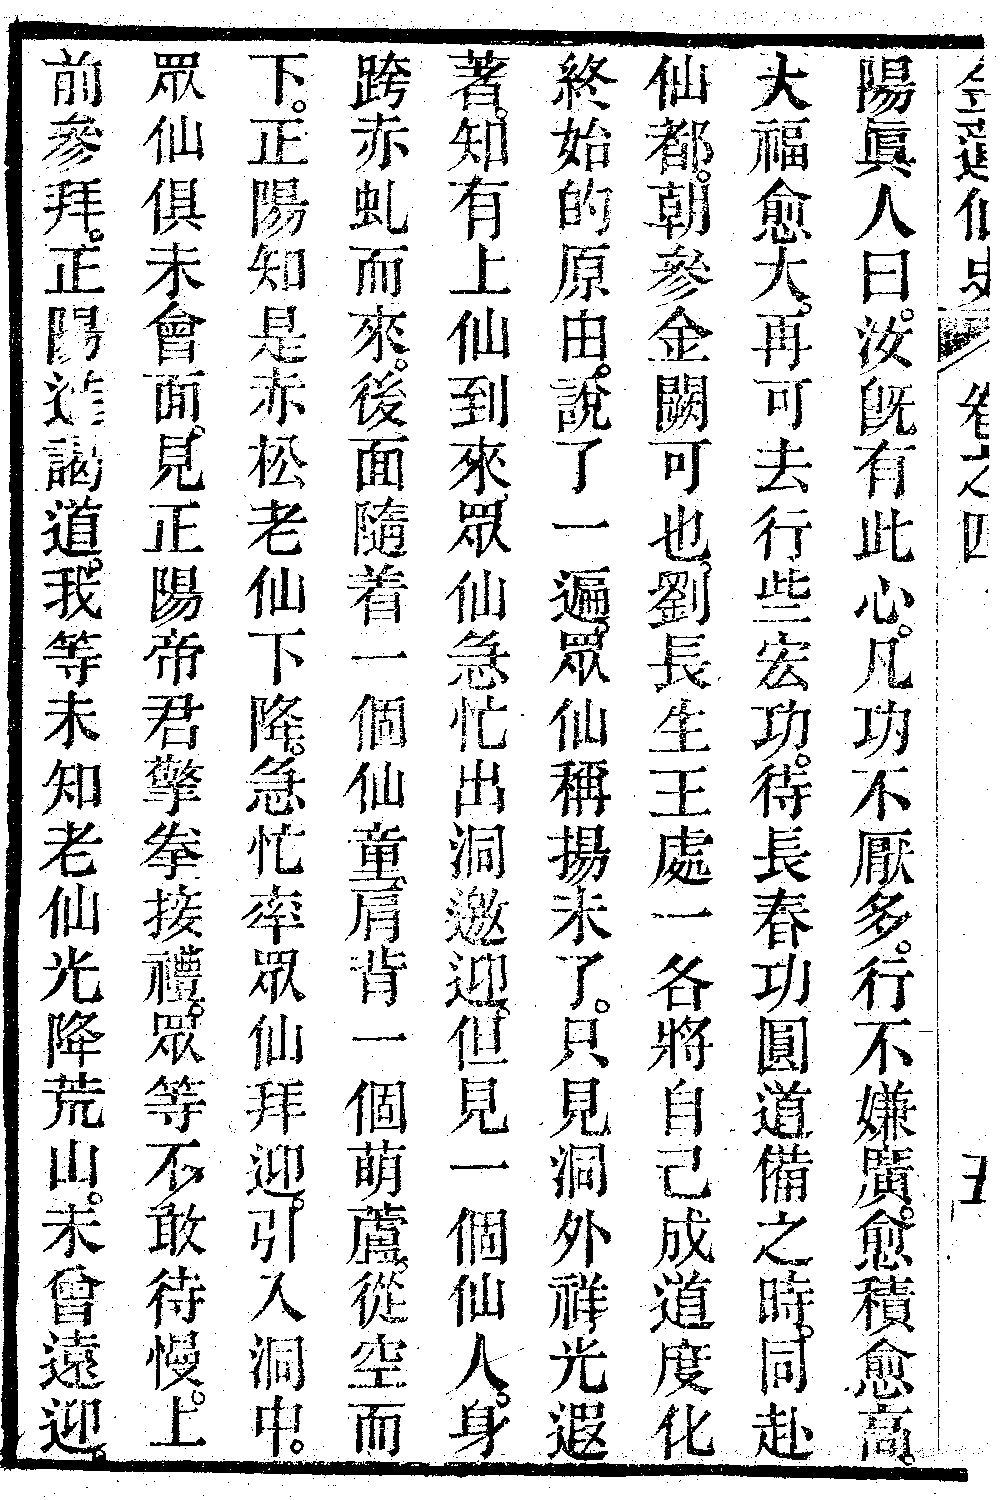 金蓮仙史 卷之四 五
陽眞人曰。汝旣有此心。凡功不厭多。行不嫌廣。愈積愈高。
大福愈大。再可去行些宏功。待長春功圓道備之時。同赴
仙都。朝參金闕可也。劉長生王處一各將自己成道度化
終始的原由。說了一遍。眾仙稱揚未了。只見洞外祥光遐
著。知有上仙到來。眾仙急忙出洞邀迎。但見一個仙人。身
跨赤虬而來。後面隨着一個仙童。肩背一個萌蘆。從空而
下。正陽知是赤松老仙下降。急忙率眾仙拜迎。引入洞中。
眾仙俱未會面。見正陽帝君擎拳接禮。眾等不敢待慢。上
前參拜。正陽進謁道。我等未知老仙光降荒山。未曾遠迎。